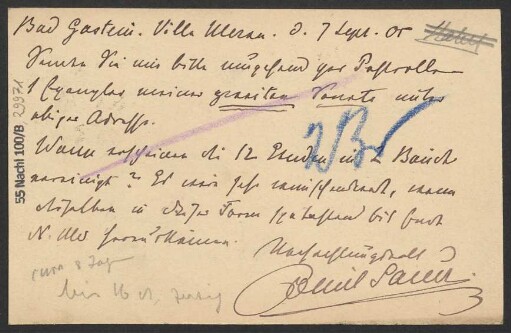 Bad Gastein. Villa Meran. d. 7 Sept. 05
Senden Sie mir bitte umgehend per Postrolle
1 Exemplar meiner zweiten Sonate unter
obiger Adresse.
Wann erscheinen die 12 Etuden in 2 Bänden
vereinigt? Es wäre sehr wünschenswert, wenn
dieselben in dieser Form spätestens bis Ende
N. Ms herauskämen.
Hochachtungsvoll
Emil Sauer.
nur 8 Tag
bis 16 d.
55 Nachl 100/B